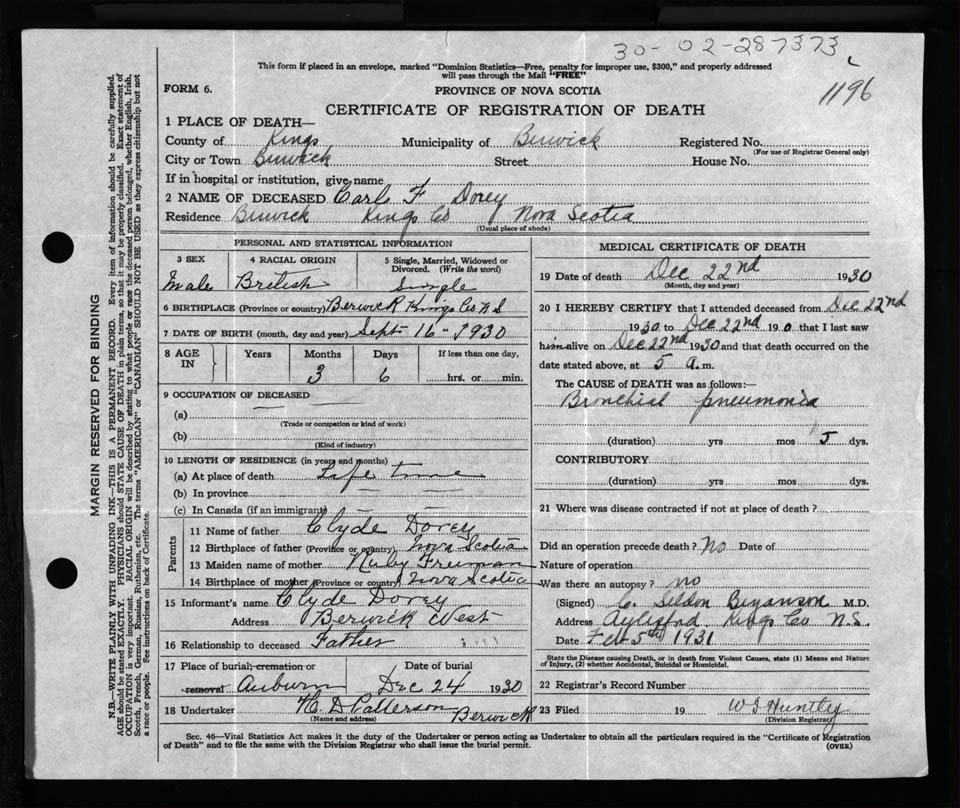 30-02-287373
This form if placed in an envelope, marked "Dominion Statistics—Free, penalty for improper use, $300," and properly addressed
will pass through the Mail "FREE"
1196
FORM 6.
PROVINCE OF NOVA SCOTIA
CERTIFICATE OF REGISTRATION OF DEATH
1 PLACE OF DEATH—
County of Kings Municipality of Berwick Registered No.
(For use of Registrar General only)
City or Town Berwick Street House No.
If in hospital or institution, give name
2 NAME OF DECEASED Carl F Dorey
Residence Berwick Kings Co Nova Scotia
(Usual place of abode)
PERSONAL AND STATISTICAL INFORMATION
3 SEX 4 RACIAL ORIGIN 5 Single, Married, Widowed or Divorced. (Write the word)
Male British Single
6 BIRTHPLACE (Province or country) Berwick Kings Co N S
7 DATE OF BIRTH (month, day and year) Sept 16 - 1930
8 AGE IN Years Months Days If less than one day,
3 6 hrs. or min.
9 OCCUPATION OF DECEASED
(a)
(Trade or occupation or kind of work)
(b)
(Kind of industry)
10 LENGTH OF RESIDENCE (in years and months)
(a) At place of death Life time
(b) In province
(c) In Canada (if an immigrant)
Parents
11 Name of father Clyde Dorey
12 Birthplace of father (Province or country) Nova Scotia
13 Maiden name of mother Ruby Freeman
14 Birthplace of mother (Province or country) Nova Scotia
15 Informant's name Clyde Dorey
Address Berwick West
16 Relationship to deceased Father
17 Place of burial, cremation or removal Auburn Date of burial Dec 24 1930
18 Undertaker Patterson Berwick
(Name and address)
MEDICAL CERTIFICATE OF DEATH
19 Date of death Dec 22nd 1930
(Month, day and year)
20 I HEREBY CERTIFY that I attended deceased from Dec 22nd
1930 to Dec 22nd 190 that I last saw
him alive on Dec 22nd 1930 and that death occurred on the
date stated above, at 5 a.m.
The CAUSE OF DEATH was as follows:—
Bronchial pneumonia
(duration) yrs mos 5 dys.
CONTRIBUTORY
(duration) yrs. mos. dys.
21 Where was disease contracted if not at place of death?
Did an operation precede death? No Date of
Nature of operation
Was there an autopsy? no
(Signed) C. Seldon Bezanson M.D.
Address Aylesford Kings Co N.S.
Date Feb 5th 1931
State the Disease causing Death, or in death from Violent Causes, state (1) Means and Nature
of Injury, (2) whether Accidental, Suicidal or Homicidal.
22 Registrar's Record Number
23 Filed 19 Huntly
(Division Registrar)
Sec. 46—Vital Statistics Act makes it the duty of the Undertaker or person acting as Undertaker to obtain all the particulars required in the "Certificate of Registration
of Death" and to file the same with the Division Registrar who shall issue the burial permit. (OVER)
MARGIN RESERVED FOR BINDING
N.B.—WRITE PLAINLY WITH UNFADING INK—THIS IS A PERMANENT RECORD. Every item of information should be carefully supplied.
AGE should be stated EXACTLY. PHYSICIANS should STATE CAUSE OF DEATH in plain terms, so that it may be properly classified. Exact statement of
OCCUPATION is very important. RACIAL ORIGIN will be described by stating to what people or race the deceased person belonged, whether English, Irish,
Scotch, French, German, Russian, Ruthenian, etc. The terms "AMERICAN" or "CANADIAN" SHOULD NOT BE USED as they express citizenship but not
a race or people. See instructions on back of Certificate.